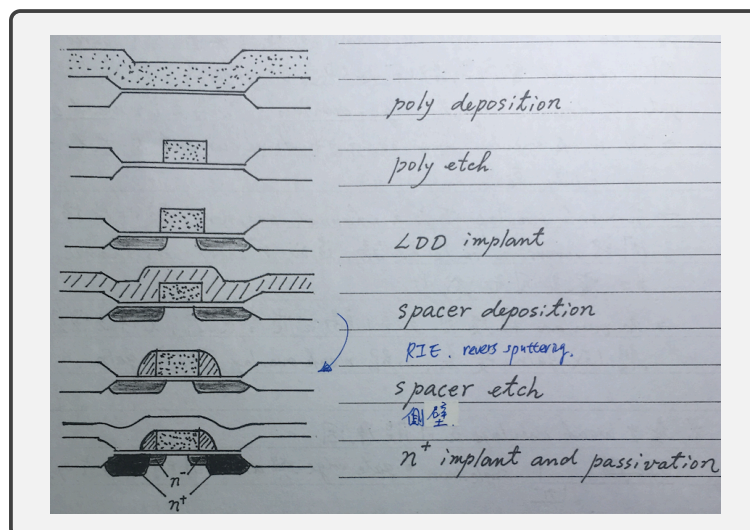 poly deposition
poly etch
LDD implant
spacer deposition
RIE. revers sputtering.
spacer etch
側壁.
n+ implant and passivation
n-
n+